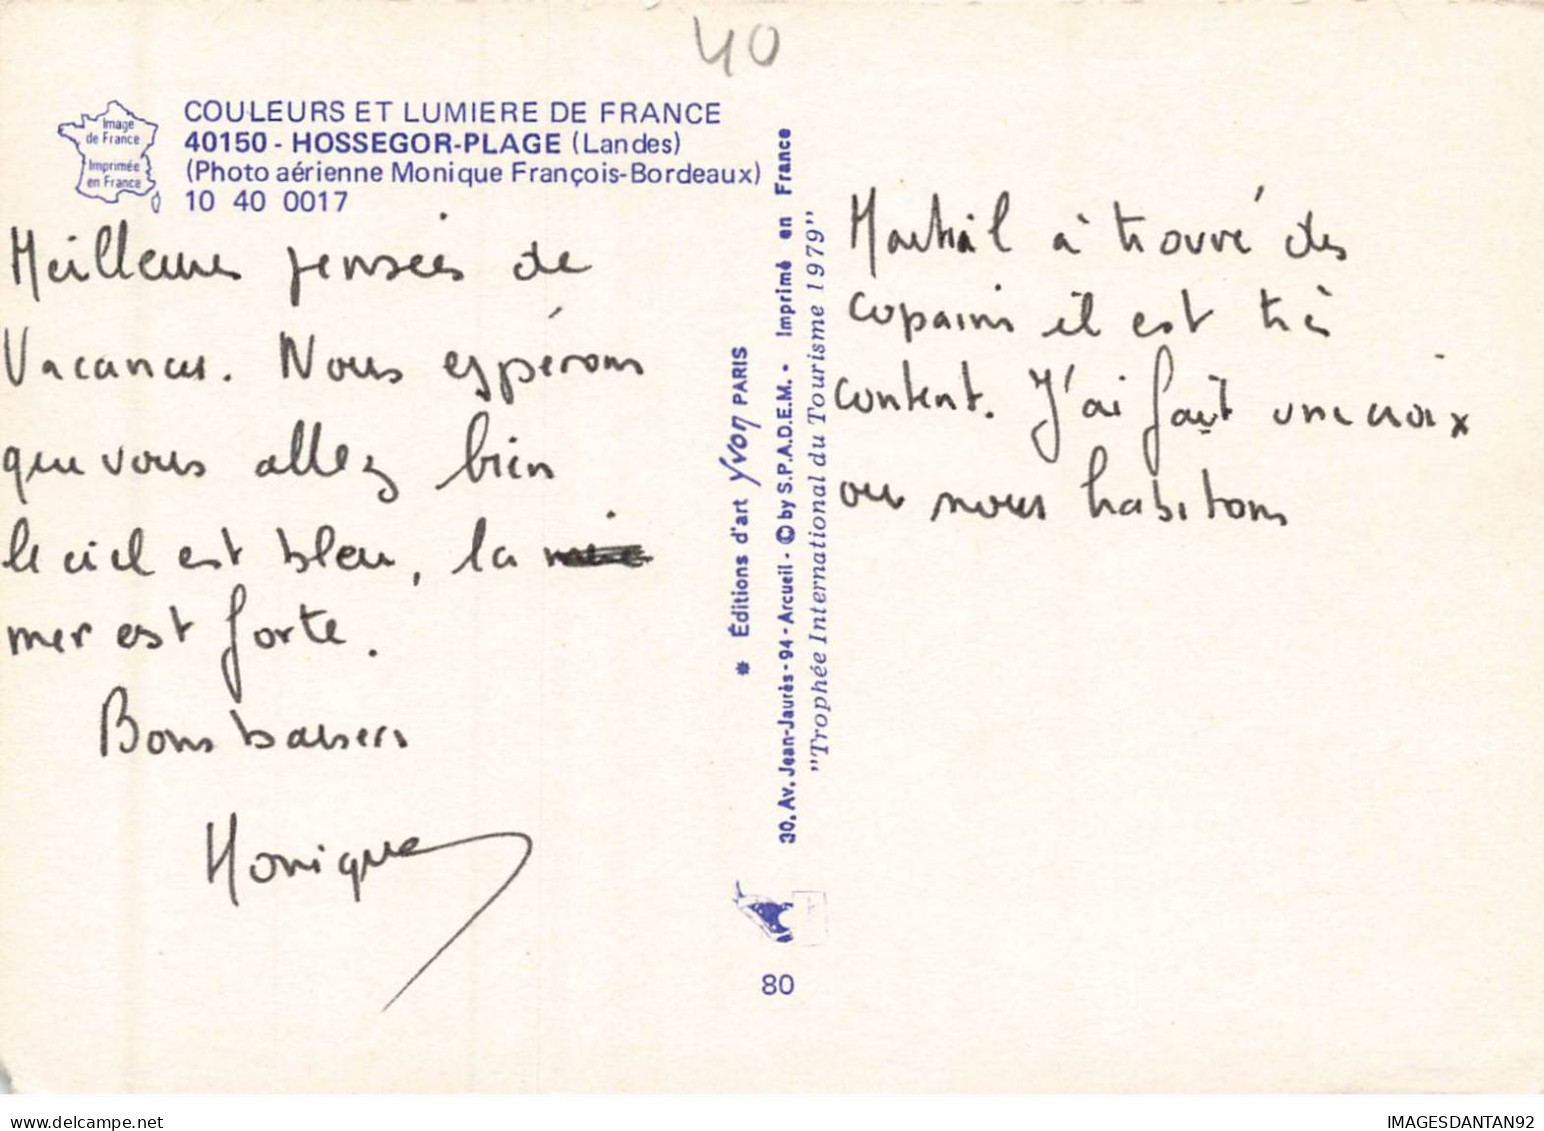 40
Image
de France
Imprimée
en France
COULEURS ET LUMIERE DE FRANCE
40150 - HOSSEGOR-PLAGE (Landes)
(Photo aérienne Monique François-Bordeaux)
10 40 0017
Meilleures pensées de
Vacances. Nous espérons
que vous allez bien
le ciel est bleu, la
mer est forte.
Bons baisers
Monique
* Éditions d'art Yvon PARIS
30, Av. Jean-Jaurès - 94 - Arcueil - © by S.P.A.D.E.M. - Imprimé en France
"Trophée International du Tourisme 1979"
80
Martial à trouvé des
copains il est très
content. J'ai fait une croix
ou nous habitons
IMAGESDANTAN92